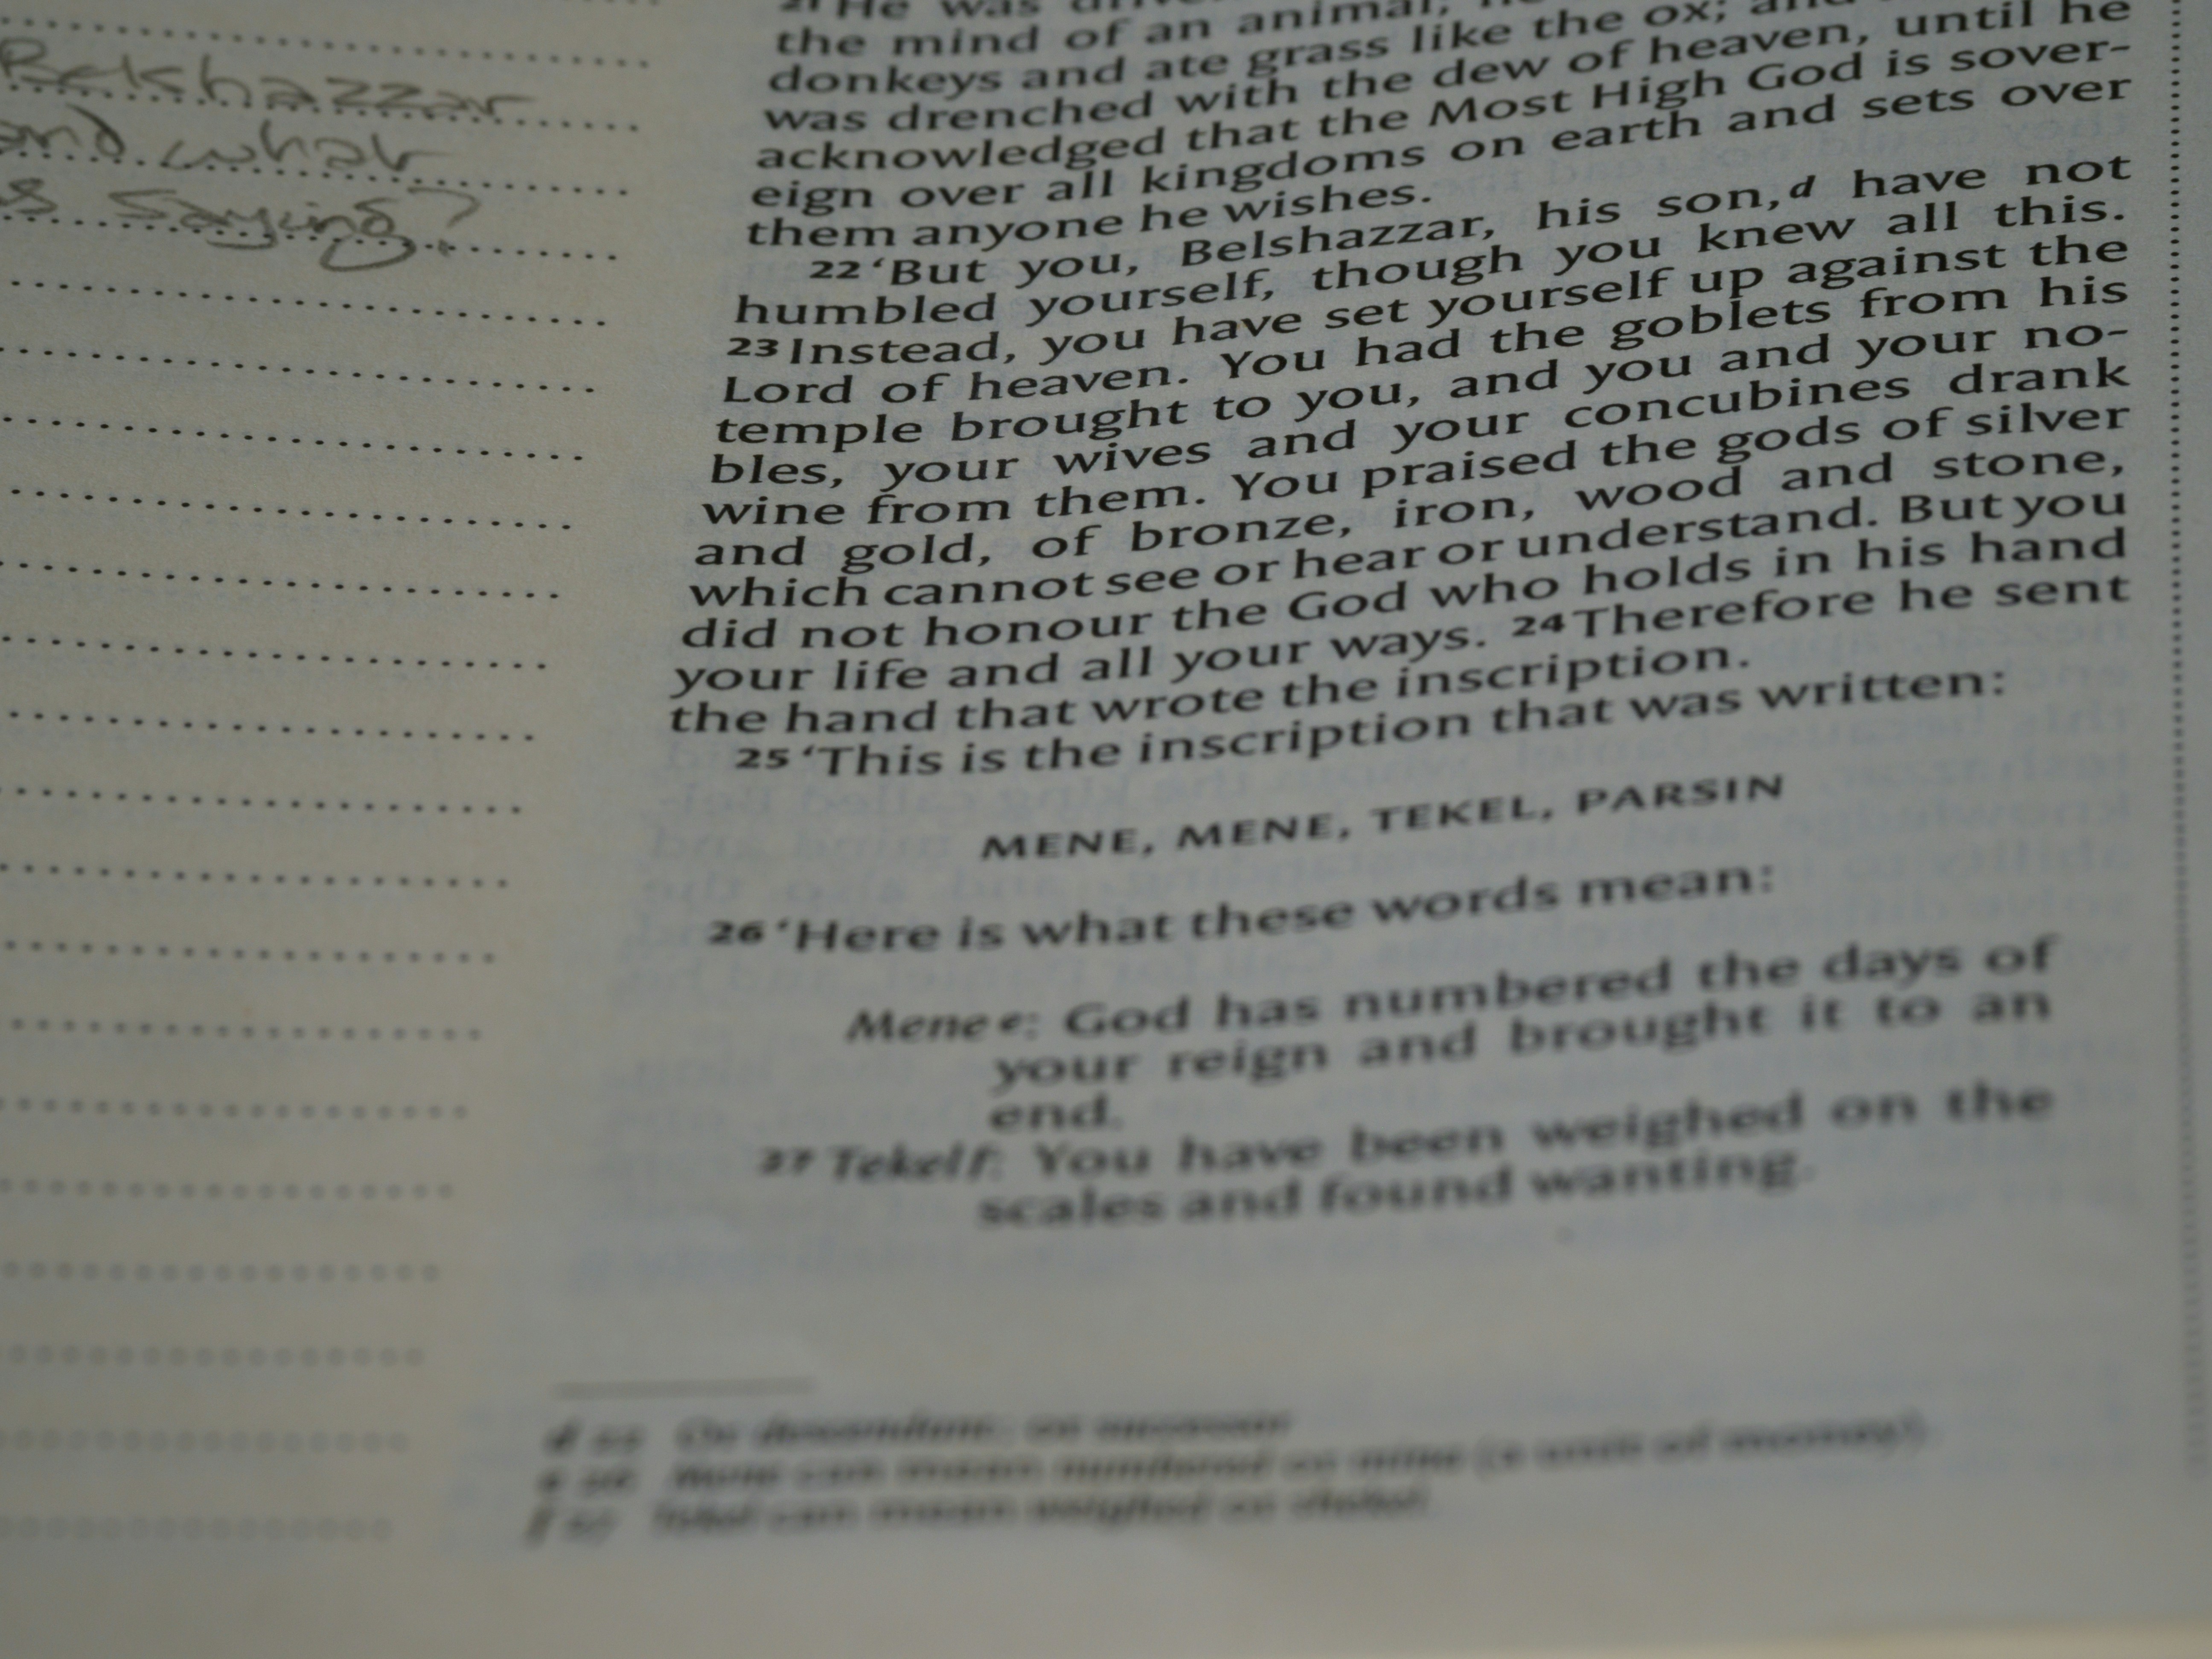 Belshazzar
and what
saying?
21 He was
the mind of an animal;
donkeys and ate grass like the ox; and
was drenched with the dew of heaven, until he
acknowledged that the Most High God is sover-
eign over all kingdoms on earth and sets over
them anyone he wishes.
22 ‘But you, Belshazzar, his son,d have not
humbled yourself, though you knew all this.
23 Instead, you have set yourself up against the
Lord of heaven. You had the goblets from his
temple brought to you, and you and your no-
bles, your wives and your concubines drank
wine from them. You praised the gods of silver
and gold, of bronze, iron, wood and stone,
which cannot see or hear or understand. But you
did not honour the God who holds in his hand
your life and all your ways. 24 Therefore he sent
the hand that wrote the inscription.
25 ‘This is the inscription that was written:
MENE, MENE, TEKEL, PARSIN
26 ‘Here is what these words mean:
Mene e: God has numbered the days of
your reign and brought it to an
end.
27 Tekel f: You have been weighed on the
scales and found wanting.
d 22 Or descendant; or successor
e 26 Mene can mean numbered or mina (a unit of money).
f 27 Tekel can mean weighed or shekel.